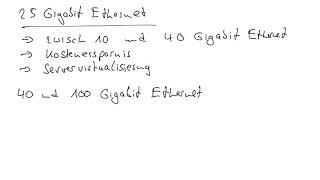 25 Gigabit Ethernet
→ zwisch 10 und 40 Gigabit Ethernet
→ Kostenersparnis
→ Servervirtualisierung
40 und 100 Gigabit Ethernet